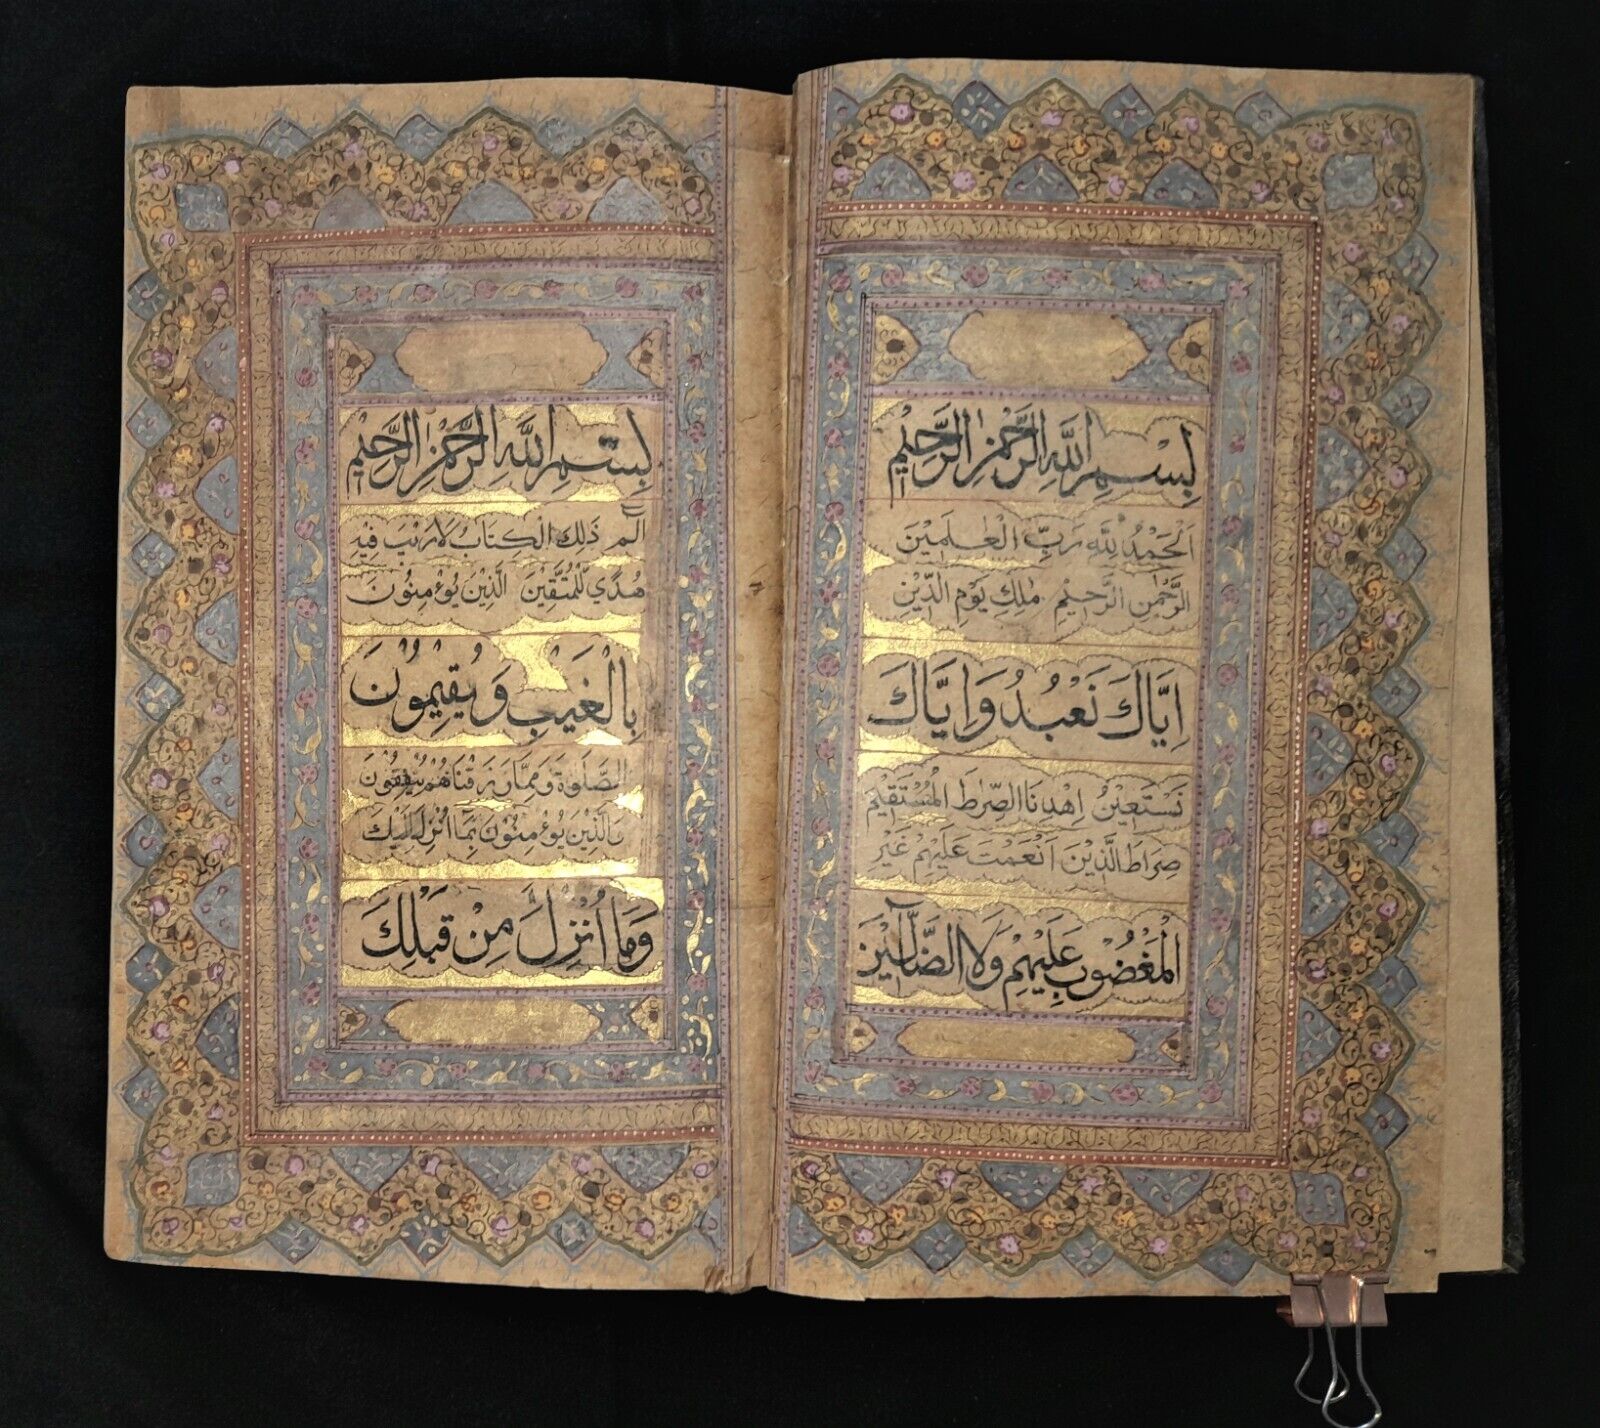 بِسْمِ اللهِ الرَّحْمٰنِ الرَّحِيْمِ
اَلْحَمْدُ لِلّٰهِ رَبِّ الْعٰلَمِيْنَ
الرَّحْمٰنِ الرَّحِيْمِ مٰلِكِ يَوْمِ الدِّيْنِ
اِيَّاكَ نَعْبُدُ وَاِيَّاكَ
نَسْتَعِيْنُ اِهْدِنَا الصِّرٰطَ الْمُسْتَقِيْمَ
صِرَاطَ الَّذِيْنَ اَنْعَمْتَ عَلَيْهِمْ غَيْرِ
الْمَغْضُوْبِ عَلَيْهِمْ وَلَا الضَّآلِّيْنَ
بِسْمِ اللهِ الرَّحْمٰنِ الرَّحِيْمِ
الٓمّٓ ذٰلِكَ الْكِتَابُ لَارَيْبَ فِيْهِ
هُدًي لِّلْمُتَّقِيْنَ الَّذِيْنَ يُوءْمِنُوْنَ
بِالْغَيْبِ وَيُقِيْمُوْنَ
الصَّلَوٰةَ وَمِمَّا رَزَقْنَاهُمْ يُنْفِقُوْنَ
وَالَّذِيْنَ يُوءْمِنُوْنَ بِمَا اُنْزِلَ اِلَيْكَ
وَمَا اُنْزِلَ مِنْ قَبْلِكَ